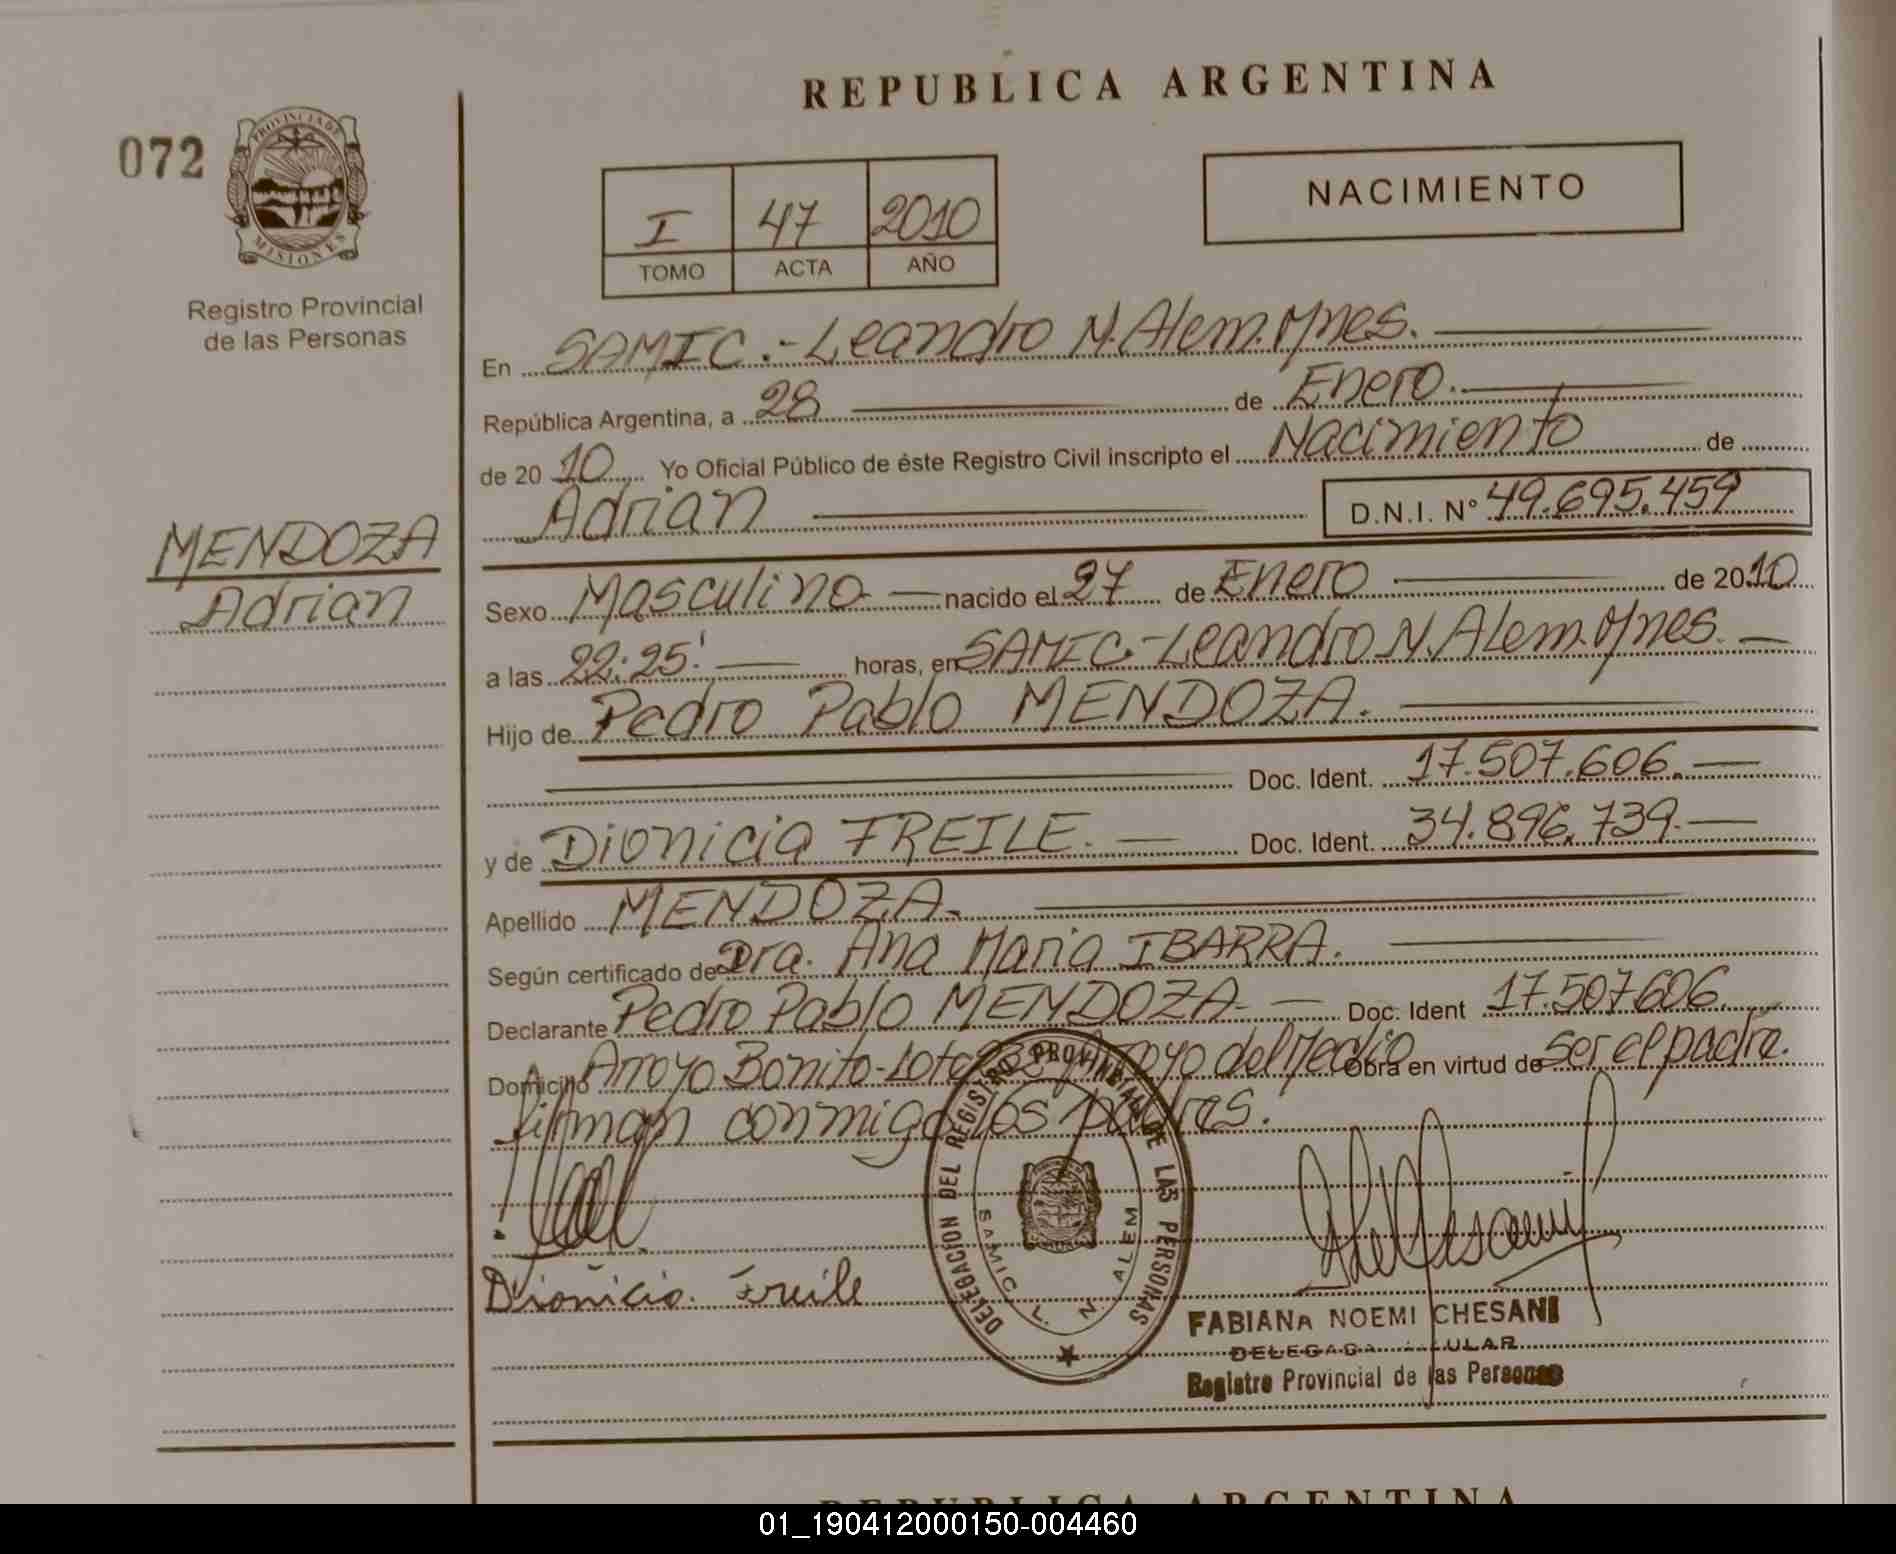 REPUBLICA ARGENTINA
072
PROVINCIA DE
MISIONES
Registro Provincial
de las Personas
NACIMIENTO
I 47 2010
TOMO ACTA AÑO
En SAMIC.-Leandro N. Alem. Mnes.
República Argentina, a 28 de Enero.
de 2010 Yo Oficial Público de éste Registro Civil inscripto el Nacimiento de
Adrian D.N.I. Nº 49.695.459
MENDOZA
Adrian
Sexo Masculino nacido el 27 de Enero de 2010
a las 22:25' horas, en SAMIC.-Leandro N. Alem. Mnes.
Hijo de Pedro Pablo MENDOZA.
Doc. Ident. 17.507.606.
y de Dionicia FREILE. Doc. Ident. 34.896.739.
Apellido MENDOZA.
Según certificado de Dra. Ana Maria IBARRA.
Declarante Pedro Pablo MENDOZA Doc. Ident 17.507.606.
Domicilio Arroyo Bonito-Lote Arroyo del Medio Obra en virtud de ser el padre.
Firman conmigo los padres.
Dionicia Freile
DELEGACION DEL REGISTRO PROVINCIAL DE LAS PERSONAS
SAMIC L. N. ALEM
FABIANA NOEMI CHESANI
Registro Provincial de las Personas
REPUBLICA ARGENTINA
01_190412000150-004460